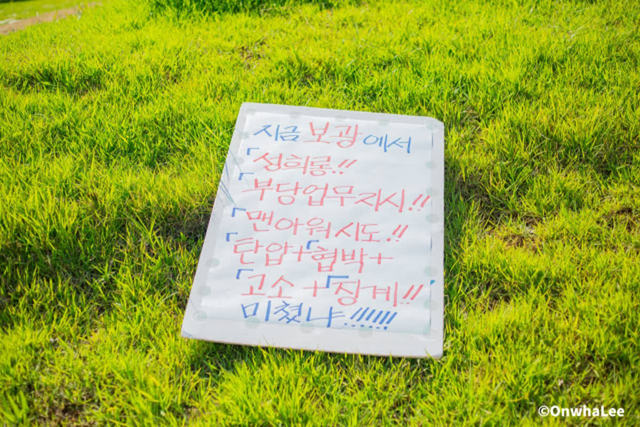 지금 보광에서
「성희롱!!
「부당업무지시!!
「맨아워시도!!
「탄압+「협박+
「고소+「징계!!
미쳤냐!!!!!!
©OnwhaLee